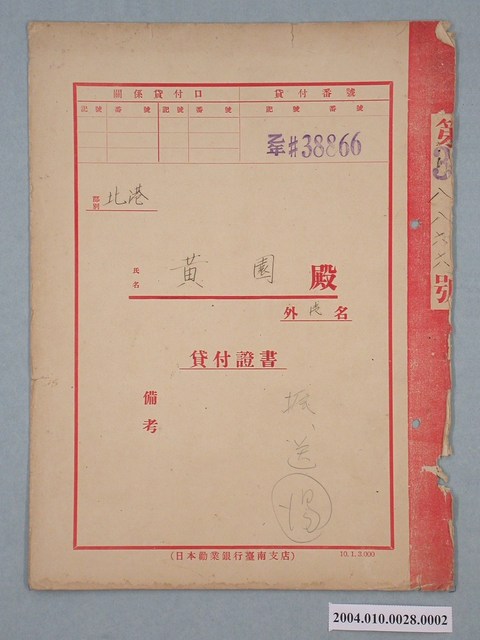 關係貸付口 貸付番號
記號 番號 記號 番號 記號 番號
井38866
郡別 北港
氏名 黃園殿
外 名
貸付證書
備考
送
(日本勸業銀行臺南支店)
10.1.3.000
第3八八六六號
2004.010.0028.0002